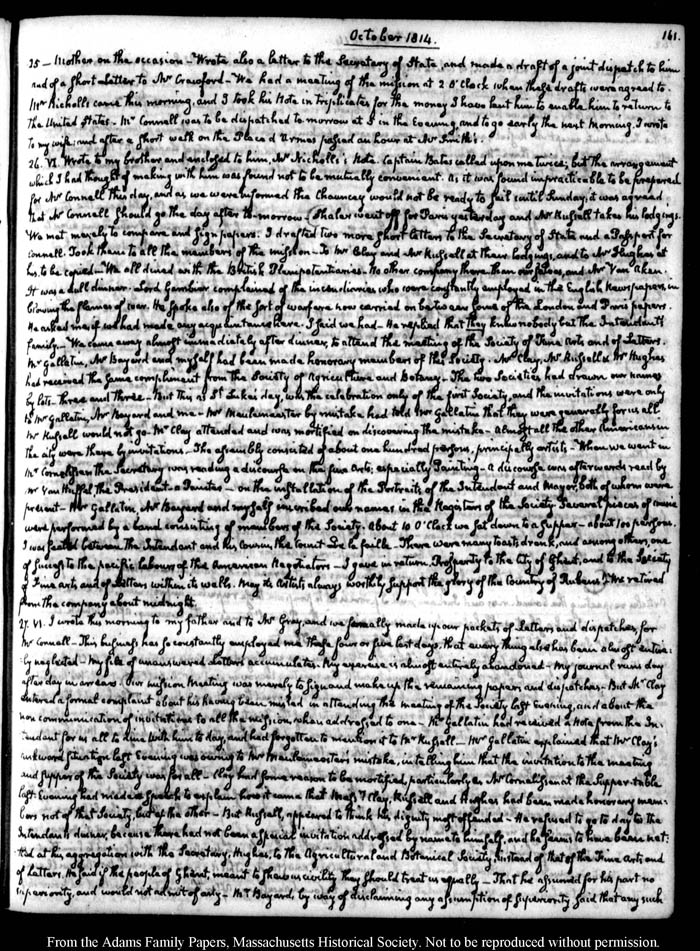 October 1814.
161.
25 — Mother on the occasion — Wrote also a letter to the Secretary of State, and made a draft of a joint dispatch to him
and of a short Letter to Mr Crawford — We had a meeting of the mission at 2 O'Clock when these drafts were agreed to.
Mr Nicholls came this morning, and I took his Note in triplicates for the money I have lent him to enable him to return to
the United States. Mr Connell was to be dispatched to morrow at 5 in the Evening, and to go early the next Morning. I wrote
to my wife; and after a short walk on the Place d'Armes passed an hour at Mr Smith's.
26. VI. Wrote to my brother and enclosed to him, Mr Nicholls's Note. Captain Bates called upon me twice; but the arrangement
which I had thought of making with him was found not to be mutually convenient. As it was found impracticable to be prepared
for Mr Connell this day, and as we were informed the Chauncey would not be ready to sail until Sunday, it was agreed,
that Mr Connell should go the day after to-morrow. Shaler went off for Paris yesterday and Mr Russell takes his lodgings.
We met merely to compare and sign papers. I drafted two more short letters to the Secretary of State and a Passport for
Connell. Took them to all the members of the mission — To Mr Clay and Mr Russell at their lodgings, and to Mr Hughes at
his, to be copied — We all dined with the British Plenipotentiaries. No other company there than ourselves, and Mr Van Aken.
It was a dull dinner. Lord Gambier complained of the incendiaries who were constantly employed in the English Newspapers, in
blowing the flames of war. He spoke also of the sort of warfare now carried on between some of the London and Paris papers.
He asked me if we had made any acquaintance here. I said we had — He replied that they knew nobody but the Intendant's
family — We came away almost immediately after dinner, to attend the meeting of the Society of Fine Arts and of Letters.
Mr Gallatin, Mr Bayard and myself had been made honorary members of this Society. Mr Clay, Mr Russell & Mr Hughes
had received the same compliment from the Society of Agriculture and Botany — The two Societies had drawn our names
by lots. three and three — But this as St Luke's day, was the celebration only of the first Society, and the invitations were only
to Mr Gallatin, Mr Bayard and me — Mr Meulemeester by mistake had told Mr Gallatin that they were generally for us all
Mr Russell would not go. Mr Clay attended and was mortified on discovering the mistake — Almost all the other Americans in
the city were there by invitations — The assembly consisted of about one hundred persons, principally artists — When we went in
Mr Cornelissen the Secretary was reading a discourse on the fine Arts; especially Painting — A discourse was afterwards read by
Mr Van Huffel the President — a Painter — on the installation of the Portraits of the Intendant and Mayor, both of whom were
present — Mr Gallatin, Mr Bayard and myself inscribed our names in the Registers of the Society. Several pieces of music
were performed by a band consisting of members of the Society. About 10 O'Clock we sat down to a supper — about 100 persons.
I was seated between the Intendant and his Cousin, the Count De la faille. There were many toasts drank, and among others, one
of success to the pacific labours of the American Negotiators — I gave in return. Prosperity to the City of Ghent, and to the Society
of Fine arts and of Letters within its walls. May its Artists always worthily support the glory of the Country of Rubens! We retired
from the company about midnight.
27. VI. I wrote this morning to my father and to Mr Gray, and we formally made up our packets of Letters and dispatches, for
Mr Connell — This business has so constantly employed me these four or five last days, that every thing else has been almost entire-
ly neglected — My file of unanswered Letters accumulates. My exercise is almost entirely abandoned — My journal runs day
after day in arrears. Our mission Meeting was merely to sign and make up the remaining papers and dispatches — But Mr Clay
entered a formal complaint about his having been misled in attending the meeting of the Society last Evening, and about the
non communication of invitations to all the mission, when addressed to one — Mr Gallatin had received a Note from the In-
tendant for us all to dine with him to day, and had forgotten to mention it to Mr Russell — Mr Gallatin explained that Mr Clay's
awkward situation last Evening was owing to Mr Meulemeester's mistake, in telling him that the invitation to the meeting
and supper of the Society was for all — Clay had some reason to be mortified, particularly as Mr Cornelissen at the Supper-table
last Evening had made a speech to explain how it came that Messrs Clay, Russell and Hughes had been made honorary mem-
bers not of that Society, but of the other — But Russell, appeared to think his dignity most offended — He refused to go to day to the
Intendant's dinner, because there had not been a special invitation addressed by name to himself, and he seems to have been net-
tled at his aggregation with the Secretary, Hughes, to the Agricultural and Botanical Society, instead of that of the Fine Arts and
of Letters. He said if the people of Ghent, meant to show us civility they should treat us equally — That he assumed for his part no
superiority, and would not admit of any — Mr Bayard, by way of disclaiming any assumption of superiority said that any such
From the Adams Family Papers, Massachusetts Historical Society. Not to be reproduced without permission.